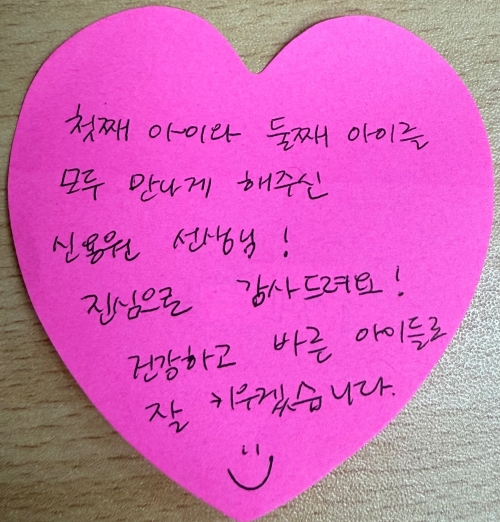 첫째 아이와 둘째 아이를
모두 만나게 해주신
신용원 선생님!
진심으로 감사드려요!
건강하고 바른 아이들로
잘 키우겠습니다.